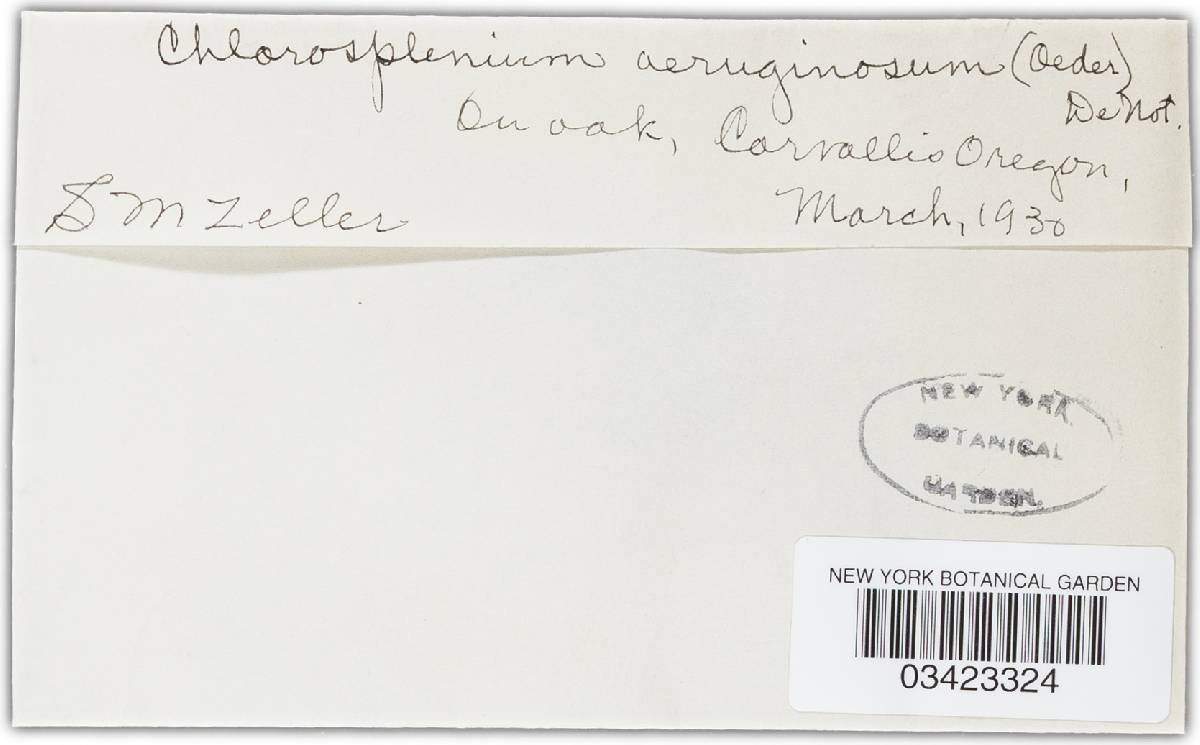 Chlorosplenium aeruginosum (Oeder)
De Not.
On oak, Corvallis Oregon,
S M Zeller
March, 1930
NEW YORK
BOTANICAL
GARDEN.
NEW YORK BOTANICAL GARDEN
03423324